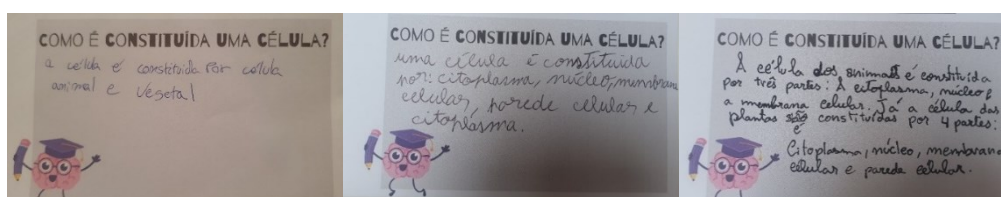 COMO É CONSTITUÍDA UMA CÉLULA?
a célula é constituida por celula
animal e vegetal
COMO É CONSTITUÍDA UMA CÉLULA?
uma célula é constituída
por: citoplasma, núcleo, mumbrana
celular, parede celular e
citoplásma.
COMO É CONSTITUÍDA UMA CÉLULA?
A célula dos animais é constituída
por três partes: A citoplasma, núcleo e
a membrana celular. Já a célula das
plantas são constituídas por 4 partes:
é
Citoplasma, núcleo, membrana
celular e parede celular.